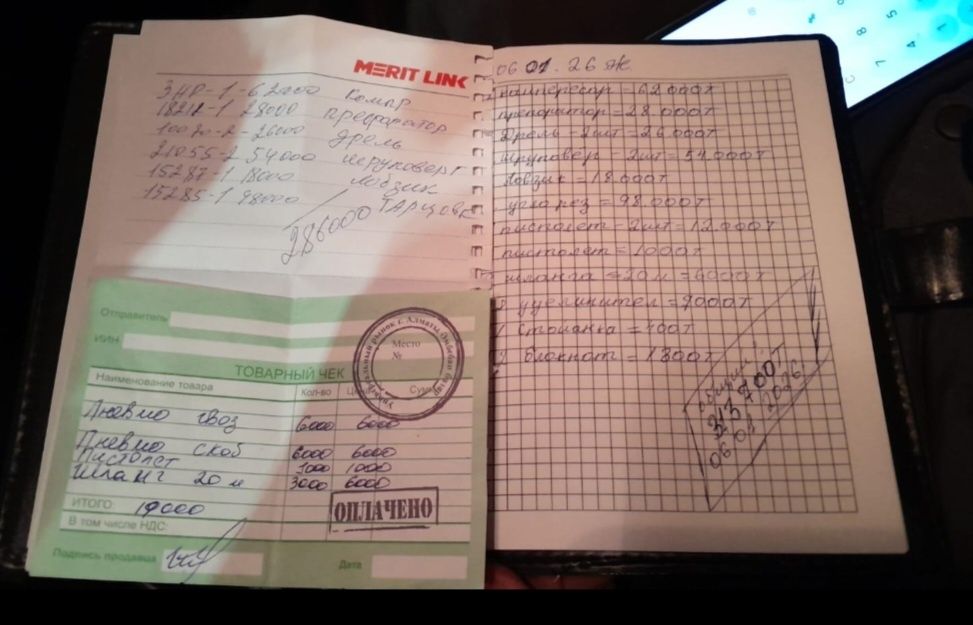 MERIT LINK
3HP-1-62000 Компр
18211-1 28000 префаратор
10020-2-26000 Дрель
21055-2 54000 шеруковерт
15287-1 18000 Лобзик
15285-1 98000 ТАРЦОВК
286000
Отправитель
ИИН
ТОВАРНЫЙ ЧЕК
Универсальный рынок г. Алматы
Место №
Наименование товара Кол-во Це Сумм
Пневмо гвоз 6000 6000
Пневмо скоб 6000 6000
Пистолет 1000 1000
Шланг 20 м 3000 6000
ИТОГО: 19000
ОПЛАЧЕНО
В том числе НДС:
Подпись продавца
Дата
06 01. 26 Ж.
компресор = 62 000т
препоратор = 28.000т
Дрель - 2шт = 26.000т
шруповёр - 2шт = 54.000т
Лобзик = 18.000т
углорез = 98.000т
пистолет - 2шт = 12.000т
пистолет = 1000т
шланга = 20 м = 6000т
уделинител = 7000т
стоианка = 400т
блокнот = 1300т
общий:
313 700т
06 01 2026